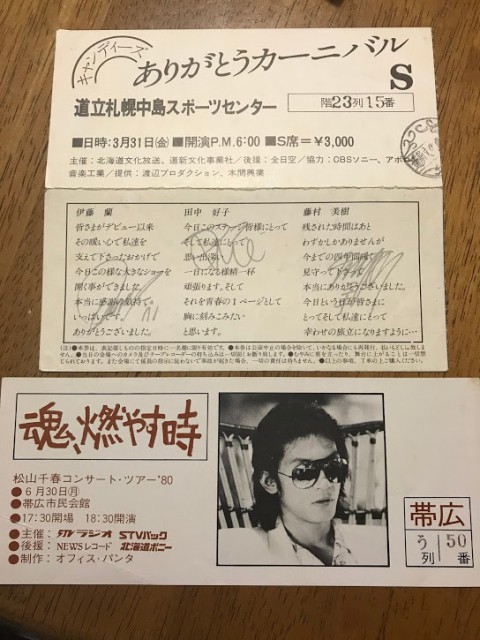 キャンディーズ
ありがとうカーニバル
S
道立札幌中島スポーツセンター
階23列15番
■日時:3月31日(金)■開演P.M.6:00■S席=¥3,000
主催:北海道文化放送、道新文化事業社/後援:全日空/協力:CBSソニー、アポロン
音楽工業/提供:渡辺プロダクション、本間興業
伊藤 蘭
皆さまがデビュー以来
その暖い心で私達を
支えて下さったおかげで
今日この様な大きなショーを
開く事ができました。
本当に感謝の気持で
いっぱいです。
ありがとうございました。
田中 好子
今日このステージ皆様にとって
そして私達にとって
思い出深い
一日になる様精一杯
頑張ります。そして
それを青春の1ページとして
胸に刻みこみたい
と思います。
藤村 美樹
残された時間はあと
わずかしかありませんが
今までの四年間温く
見守って下さって
本当にありがとうございました。
今日という日が皆さまに
とってそして私達にとって
幸わせの旅立になりますように…
魂、燃やす時
松山千春コンサート・ツアー'80
●6月30日(月)
●帯広市民会館
●17:30開場 18:30開演
●主催: STVラジオ STVパック
●後援: NEWSレコード 北海道ポニー
●制作:オフィス・パンタ
帯広
う列
50番